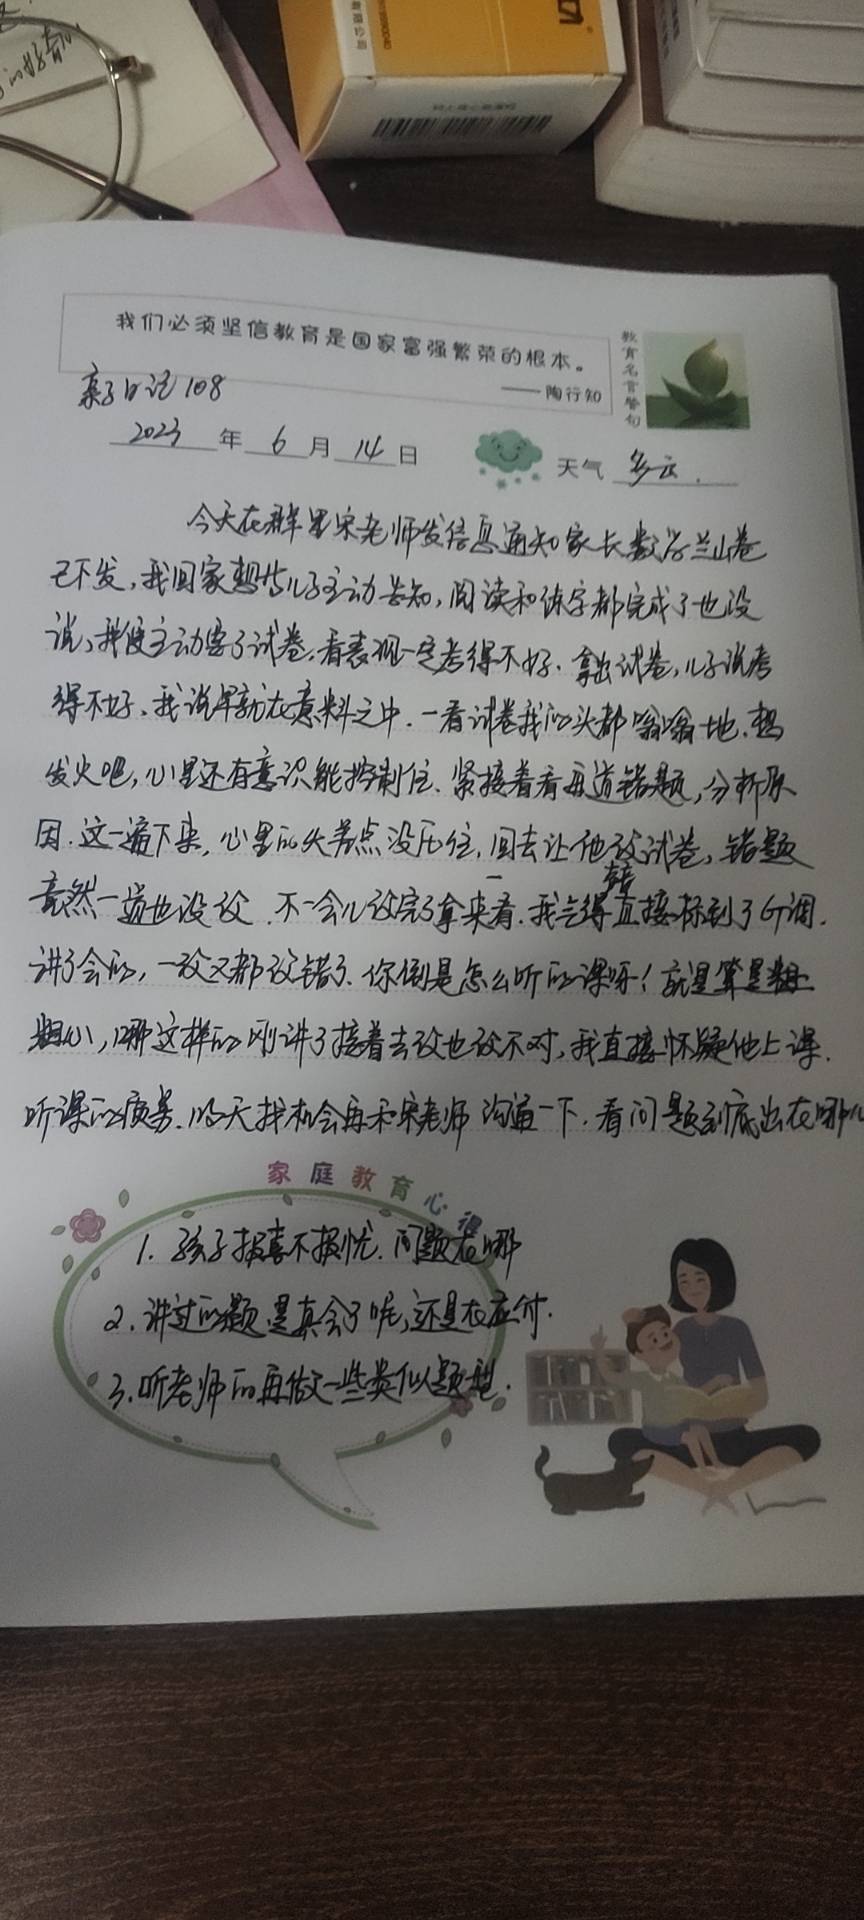 我们必须坚信教育是国家富强繁荣的根本。
——陶行知
教育名言警句
亲子日记108
2023年6月14日
天气 多云.
今天在群里宋老师发信息通知家长数学兰山卷
已下发,我回家想找儿子主动告知,阅读和练字都完成了也没
说,我便主动要了试卷,看表现一定考得不好.拿出试卷,儿子说考
得不好,我说早就在意料之中.一看试卷我的头都嗡嗡地.想
发火吧,心里还有意识能控制住.紧接着看每道错题,分析原
因.这一遍下来,心里的火差点没压住,回去让他改试卷,错题
竟然一道也没改.不一会儿改完了拿来看.我气得直接标到了G调.
讲了会的,一改又都改错了.你倒是怎么听的课呀!就是算是粗
粗心,哪这样的刚讲了接着去改也改不对,我直接怀疑他上课.
听课的质量.明天找机会再和宋老师沟通一下.看问题到底出在哪儿
家庭教育心得
1.孩子报喜不报忧.问题在哪
2.讲过的题,是真会了呢,还是在应付.
3.听老师的再做一些类似题型.